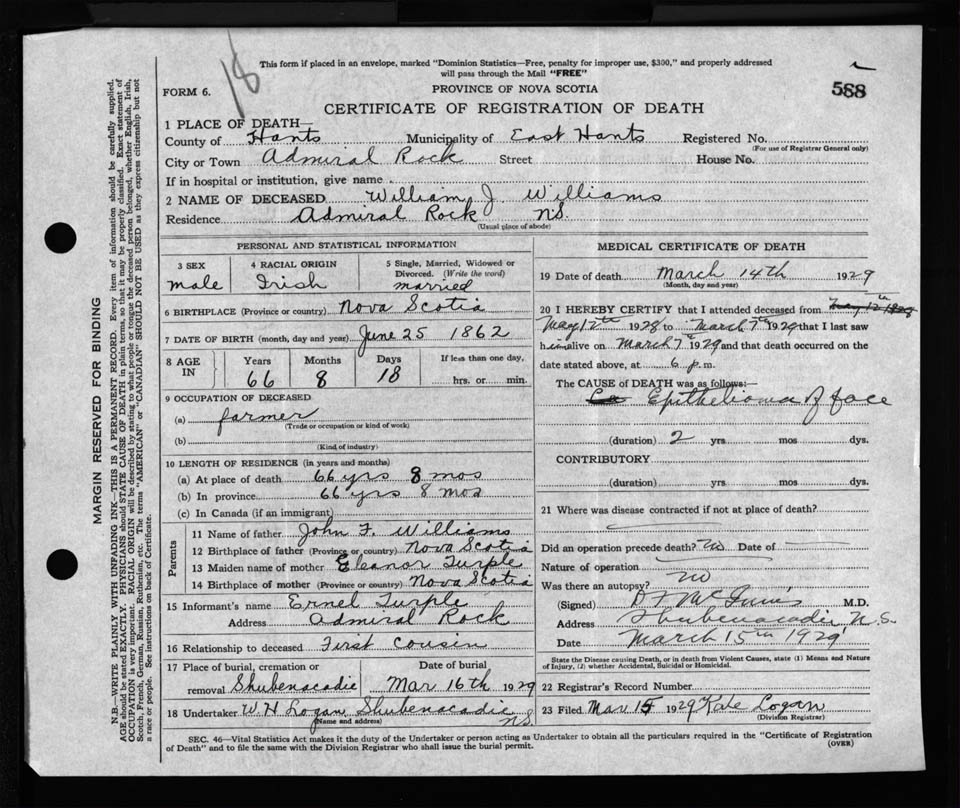 18
This form if placed in an envelope, marked "Dominion Statistics—Free, penalty for improper use, $300," and properly addressed
will pass through the Mail "FREE"
FORM 6. PROVINCE OF NOVA SCOTIA 588
CERTIFICATE OF REGISTRATION OF DEATH
1 PLACE OF DEATH—
County of Hants Municipality of East Hants Registered No.
(For use of Registrar General only)
City or Town Admiral Rock Street House No.
If in hospital or institution, give name
2 NAME OF DECEASED William J. Williams
Residence Admiral Rock N.S.
(Usual place of abode)
PERSONAL AND STATISTICAL INFORMATION
3 SEX 4 RACIAL ORIGIN 5 Single, Married, Widowed or
Divorced. (Write the word)
male Irish married
6 BIRTHPLACE (Province or country) Nova Scotia
7 DATE OF BIRTH (month, day and year) June 25 1862
8 AGE IN Years Months Days If less than one day,
66 8 18 hrs. or min.
9 OCCUPATION OF DECEASED
(a) farmer
(Trade or occupation or kind of work)
(b)
(Kind of industry)
10 LENGTH OF RESIDENCE (in years and months)
(a) At place of death 66 yrs 8 mos
(b) In province 66 yrs 8 mos
(c) In Canada (if an immigrant)
Parents
11 Name of father John F. Williams
12 Birthplace of father (Province or country) Nova Scotia
13 Maiden name of mother Eleanor Turple
14 Birthplace of mother (Province or country) Nova Scotia
15 Informant's name Ernel Turple
Address Admiral Rock
16 Relationship to deceased First cousin
17 Place of burial, cremation or Date of burial
removal Shubenacadie Mar 16th 1929
18 Undertaker W H Logan Shubenacadie
(Name and address) N.S.
MEDICAL CERTIFICATE OF DEATH
19 Date of death March 14th 1929
(Month, day and year)
20 I HEREBY CERTIFY that I attended deceased from May 12th 1929
May 12th 1928 to March 7th 1929 that I last saw
him alive on March 7th 1929 and that death occurred on the
date stated above, at 6 p.m.
The CAUSE of DEATH was as follows:—
Ca Epithelioma of face
(duration) 2 yrs mos dys.
CONTRIBUTORY
(duration) yrs mos dys.
21 Where was disease contracted if not at place of death?
Did an operation precede death? No Date of
Nature of operation
Was there an autopsy? no
(Signed) D F McInnis M.D.
Address Shubenacadie N.S.
Date March 15th 1929
State the Disease causing Death, or in death from Violent Causes, state (1) Means and Nature
of Injury, (2) whether Accidental, Suicidal or Homicidal.
22 Registrar's Record Number
23 Filed Mar 15 1929 Kate Logan
(Division Registrar)
SEC. 46—Vital Statistics Act makes it the duty of the Undertaker or person acting as Undertaker to obtain all the particulars required in the "Certificate of Registration
of Death" and to file the same with the Division Registrar who shall issue the burial permit. (OVER)
MARGIN RESERVED FOR BINDING
N.B.—WRITE PLAINLY WITH UNFADING INK—THIS IS A PERMANENT RECORD. Every item of information should be carefully supplied.
AGE should be stated EXACTLY. PHYSICIANS should STATE CAUSE OF DEATH in plain terms, so that it may be properly classified. Exact statement of
OCCUPATION is very important. RACIAL ORIGIN will be described by stating to what people or tongue the deceased person belonged, whether English, Irish,
Scotch, French, German, Russian, Ruthenian, etc. The terms "AMERICAN" or "CANADIAN" SHOULD NOT BE USED as they express citizenship but not
a race or people. See instructions on back of Certificate.